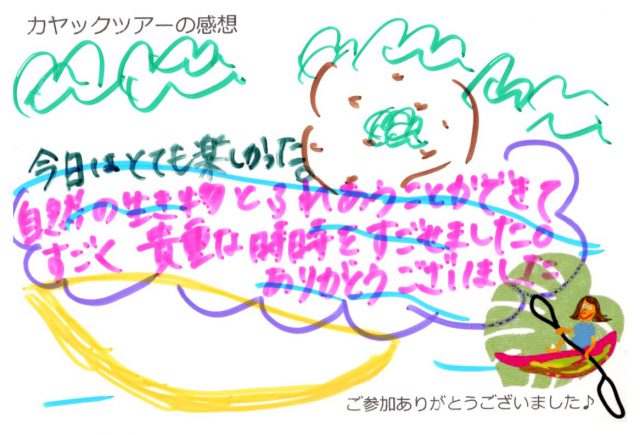 カヤックツアーの感想
今日はとても楽しかった。
自然の生き物とふれあうことができて
すごく 貴重な時時をすごせました。
ありがとうございました
ご参加ありがとうございました♪